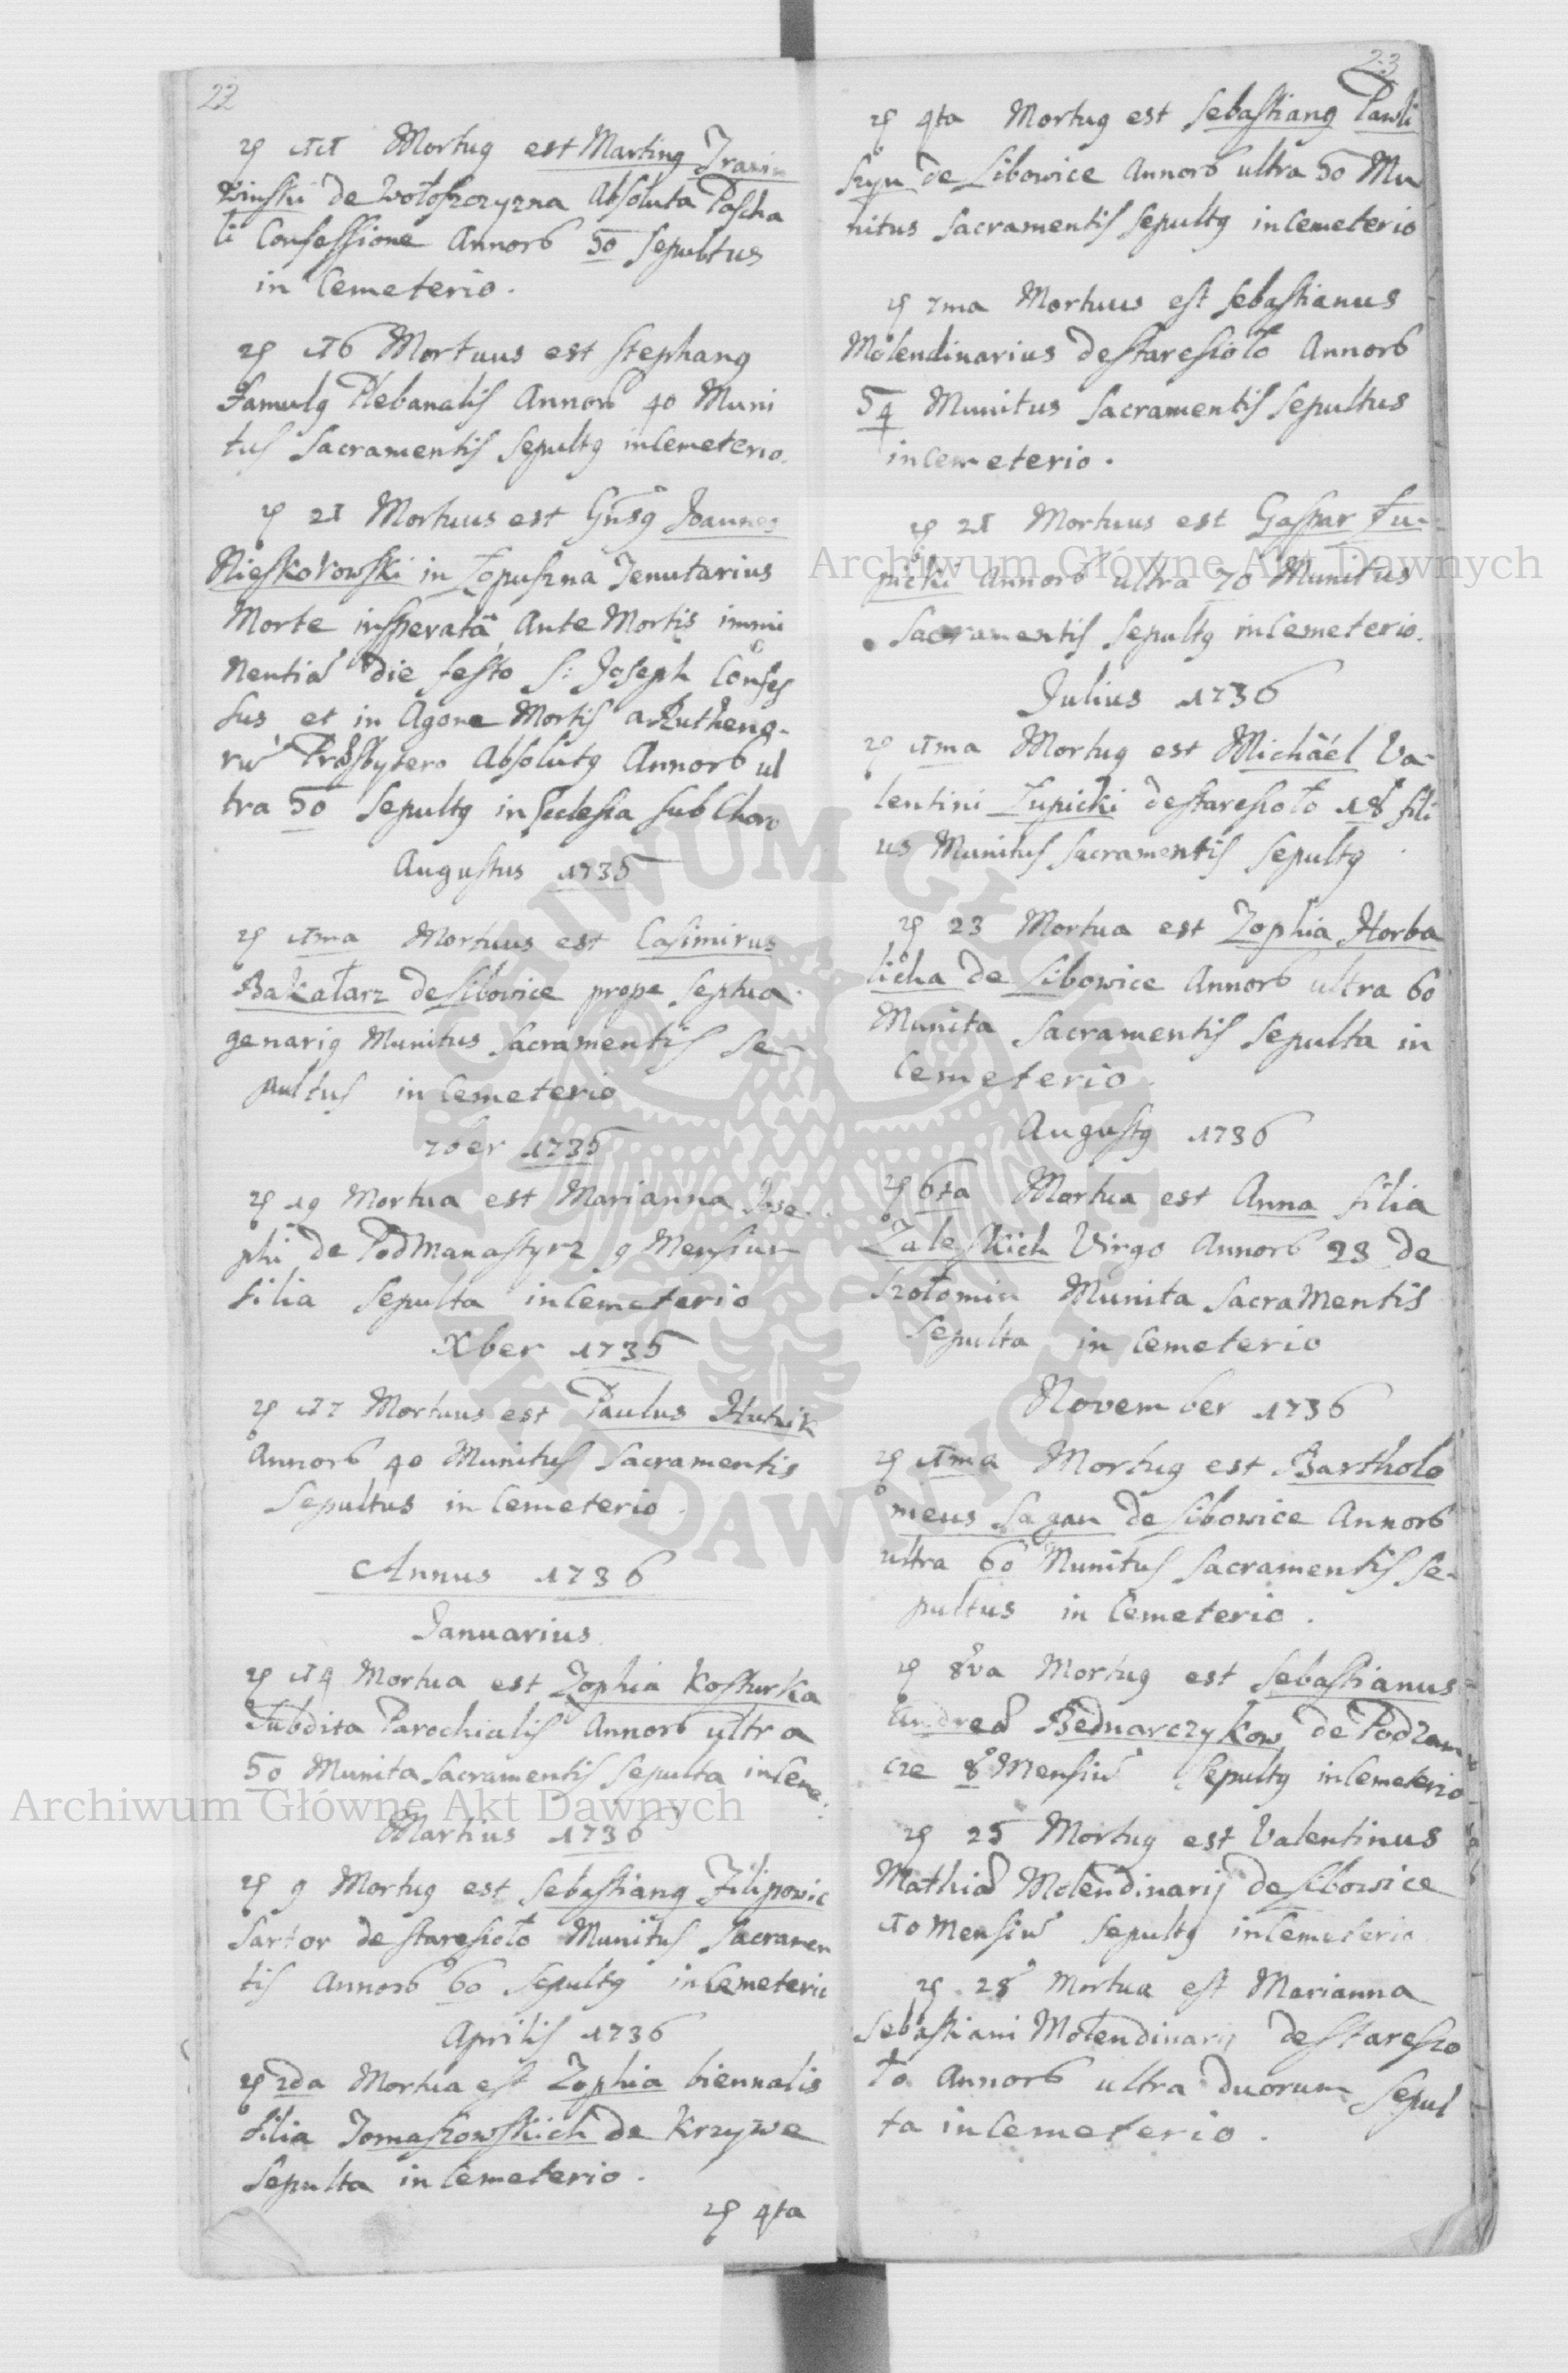 22
11 Mortuꝰ est Martinꝰ
winski de Wołoszczyzna Absoluta Pascha
li Confessione Annorб 50 Sepultus
in Cemeterio.
16 Mortuus est Stephanꝰ
Famulꝰ Plebanalis Annorб 40 Muni
tus Sacramentis Sepultꝰ in Cemeterio.
21 Mortuus est Gñsꝰ Joannes
in Łopuszna Tenutarius
Morte insperatâ, Ante Mortis immi
nentia die festo S: Joseph Confes
sus et in Agone Mortis a Rutheno-
rũ Prẽsbytero Absolutꝰ Annorб ul
tra 50 Sepultꝰ in Ecclesia sub Choro
Augustus 1735
1ma Mortuus est Casimirus
Bakałarz de Sibowice prope Septua
genariꝰ Munitus Sacramentis Se-
pultus in Cemeterio
7ber 1735
19 Mortua est Marianna Jose-
phi de Podmanastyrz 9 Mensium
filia Sepulta in Cemeterio
Xber 1735
17 Mortuus est Paulus Hutnik
Annorб 40 Munitus Sacramentis
Sepultus in Cemeterio.
Annus 1736
Januarius
14 Mortua est Zophia Kosturka
Subdita Parochialis Annorб ultra
50 Munita Sacramentis Sepulta in Ceme:
Martius 1736
9 Mortuꝰ est Sebastianꝰ Filipowic
Sartor de Staresioło Munitus Sacramen
tis Annorб 60 Sepultꝰ in Cemeterio
Aprilis 1736
2da Mortua est Zophia biennalis
filia Tomaszowskich de Krzywe
Sepulta in Cemeterio.
4ta
23
4ta Mortuꝰ est Sebastianꝰ Pawli
szyn de Sibowice Annorб ultra 50 Mu
nitus Sacramentis Sepultꝰ in Cemeterio
7ma Mortuus est Sebastianus
Molendinarius de Staresioło Annorб
54 Munitus Sacramentis Sepultus
in Cemeterio.
21 Mortuus est Gaspar Łu-
picki Annorб ultra 70 Munitus
Sacramentis Sepultꝰ in Cemeterio.
Julius 1736
1ma Mortuꝰ est Michäel Va-
lentini Łupicki de Staresioło 18 fili
us Munitus Sacramentis Sepultꝰ
23 Mortua est Zophia Horba
licha de Sibowice Annorб ultra 60
Munita Sacramentis Sepulta in
Cemeterio.
Augustꝰ 1736
6ta Mortua est Anna filia
Zaleskich Virgo Annorб 23 de
Szołomin Munita Sacramentis
Sepulta in Cemeterio
November 1736
1ma Mortuꝰ est Bartholo
meus Sagan de Sibowice Annorб
ultra 60 Munitus Sacramentis Se-
pultus in Cemeterio.
8va Mortuꝰ est Sebastianus
Andreæ Bednarczykow de Podzam
cze 8 Mensiũ Sepultꝰ in Cemeterio
25 Mortuꝰ est Valentinus
Mathiæ Molendinarij de Sibowice
10 Mensiũ Sepultꝰ in Cemeterio
28 Mortua est Marianna
Sebastiani Molendinarij de Staresio
ło Annorб ultra duorum Sepul
ta in Cemeterio.
Archiwum Główne Akt Dawnych
Archiwum Główne Akt Dawnych
ARCHIWUM GŁÓWNE AKT DAWNYCH